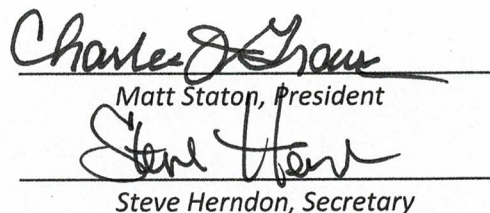 Charles J
Matt Staton, President
Steve Hern
Steve Herndon, Secretary